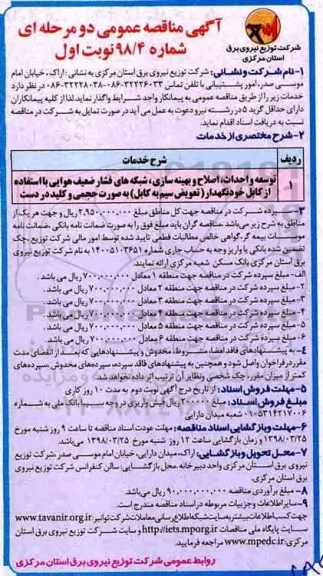 آگهی مناقصه عمومی دو مرحله ای
شماره ۹۸/۴ نوبت اول
شرکت توزیع نیروی برق
استان مرکزی
۱- نام شرکت و نشانی: شرکت توزیع نیروی برق استان مرکزی به نشانی: اراک، خیابان امام
موسی صدر امور پشتیبانی با تلفن تماس ۳۳-۳۲۲۲۶۰-۰۸۶ و ۳۲۲۲۸۰۳۸-۰۸۶ در نظر دارد
خدمات زیر را از طریق مناقصه عمومی به پیمانکار واجد شرایط واگذار نماید. لذا از کلیه پیمانکاران
دارای حداقل گرید ۵ در رشته نیرو دعوت به عمل می آید در صورت تمایل به شرکت در مناقصه
نسبت به دریافت اسناد اقدام نماید.
۲- شرح مختصری از خدمات
ردیف شرح خدمات
۱ توسعه و احداث، اصلاح و بهینه سازی، شبکه های فشار ضعیف هوایی با استفاده
از کابل خودنگهدار (تعویض سیم به کابل) به صورت حجمی و کلید در دست
۳- سپرده شرکت در مناقصه جهت کل مناطق مبلغ ۲,۹۵۰,۰۰۰,۰۰۰ ریال و جهت هر یک از
مناطق به شرح زیر می باشد. مناقصه گران باید مبلغ فوق را به صورت ضمانت نامه بانکی، ضمانت نامه
موسسات بیمه گر، گواهی خالص مطالبات قطعی تایید شده توسط امور مالی شرکت توزیع، چک
تضمین شده بانکی یا واریز وجه به حساب جاری شماره به نام شرکت توزیع نیروی
برق استان مرکزی بانک مسکن شعبه مرکزی ارائه نمایند.
الف- مبلغ سپرده شرکت در مناقصه جهت منطقه ۱ معادل ۷۰۰,۰۰۰,۰۰۰ ریال می باشد.
۲- مبلغ سپرده شرکت در مناقصه جهت منطقه ۲ معادل ۷۰۰,۰۰۰,۰۰۰ ریال می باشد.
۳- مبلغ سپرده شرکت در مناقصه جهت منطقه ۳ معادل ریال می باشد.
مبلغ سپرده شرکت در مناقصه جهت منطقه معادل ریال می باشد.
مبلغ سپرده شرکت در مناقصه جهت منطقه ۵ معادل ریال می باشد.
مبلغ سپرده شرکت در مناقصه جهت منطقه ۶ معادل ریال می باشد.
۴- به پیشنهادهای فاقد امضا، مشروط، مخدوش و پیشنهادهایی که بعد از انقضای مدت
مقرر در فراخوان واصل شود و همچنین به پیشنهادهای فاقد سپرده، سپرده های مخدوش، سپرده های
کمتر از میزان مقرر، چک شخصی و نظایر آن ترتیب اثر داده نخواهد شد.
۵- مهلت فروش اسناد: از تاریخ درج آگهی نوبت دوم به مدت ۱۰ روز کاری
مبلغ فروش اسناد: مبلغ ۲۰۰,۰۰۰ ریال فیش واریزی وجه سیبا بانک ملی به شماره
۰۱۰۵۳۱۴۲۱۷۰۰۶ شعبه میدان دارایی
۶- مهلت و بازگشایی اسناد مناقصه: مهلت عودت اسناد مناقصه تا ساعت ۹ روز شنبه مورخ
۱۳۹۸/۰۲/۲۵ و زمان بازگشایی ساعت ۱۲ روز شنبه مورخ ۱۳۹۸/۰۳/۲۵ می باشد.
۷- محل تحویل و بازگشایی: اراک، میدان دارایی، خیابان امام موسی صدر شرکت توزیع
نیروی برق استان مرکزی واحد دبیرخانه. محل بازگشایی: سالن کنفرانس شرکت توزیع نیروی
برق استان مرکزی.
۸- مبلغ برآوردی مناقصه ۹۰,۰۰۰,۰۰۰,۰۰۰ ریال می باشد.
۹- سایر اطلاعات و جزییات مربوطه در اسناد مناقصه مندرج است.
جهت کسب اطلاعات بیشتر به سایت شبکه اطلاع رسانی معاملات شرکت توانیر: www.tavanir.org.ir
سایت پایگاه ملی مناقصات http://iets.mporg.ir و سایت شرکت توزیع نیروی برق استان
مرکزی: www.mpedc.ir مراجعه فرمایید.
روابط عمومی شرکت توزیع نیروی برق استان مرکزی